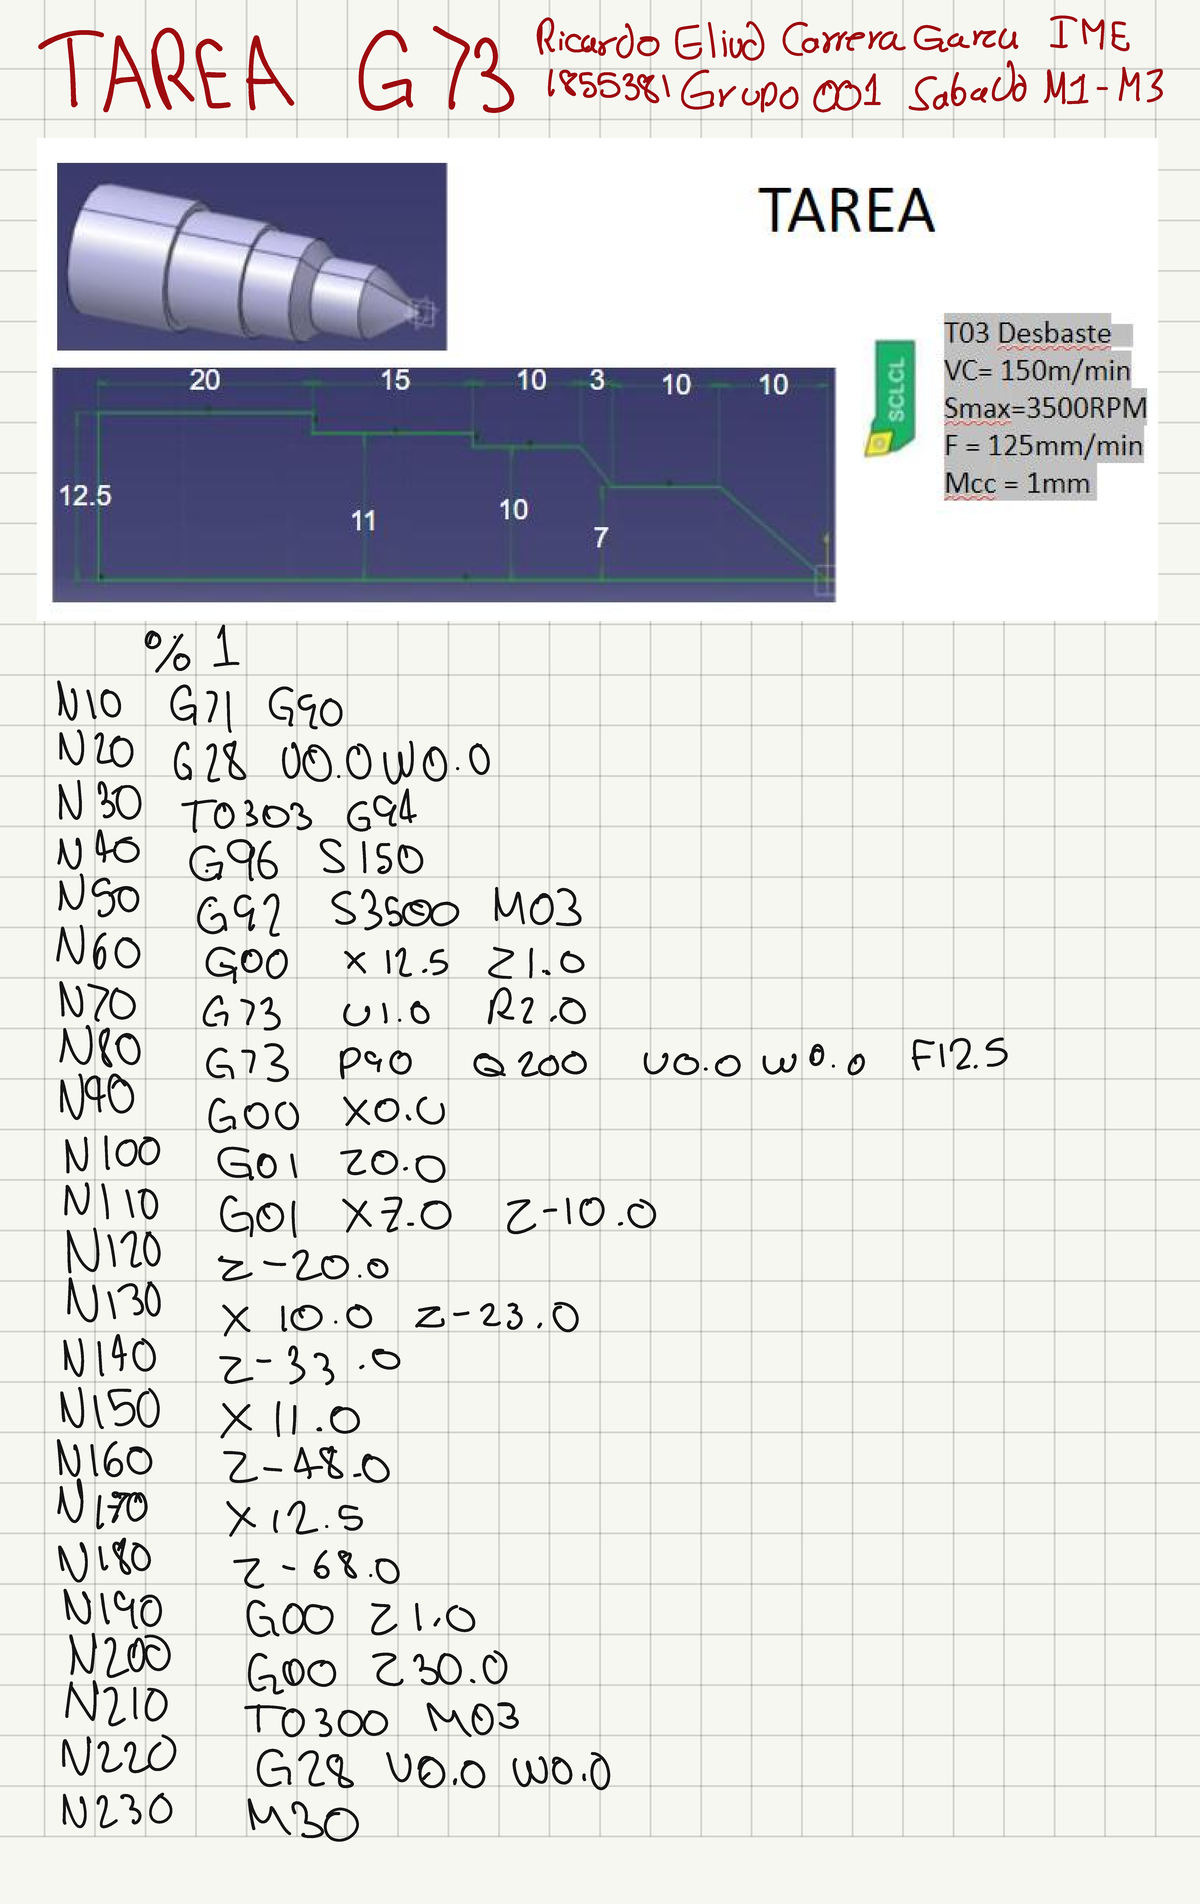 TAREA G73 Ricardo Eliud Carrera Garza IME
1855381 Grupo 001 Sabado M1-M3
TAREA
SCLCL
T03 Desbaste
VC= 150m/min
Smax=3500RPM
F = 125mm/min
Mcc = 1mm
20 15 10 3 10 10
12.5
11
10
7
% 1
N10 G71 G90
N20 G28 U0.0 W0.0
N30 T0303 G94
N40 G96 S150
N50 G92 S3500 M03
N60 G00 X12.5 Z1.0
N70 G73 U1.0 R2.0
N80 G73 P90 Q200 U0.0 W0.0 F12.5
N90 G00 X0.0
N100 G01 Z0.0
N110 G01 X7.0 Z-10.0
N120 Z-20.0
N130 X10.0 Z-23.0
N140 Z-33.0
N150 X11.0
N160 Z-48.0
N170 X12.5
N180 Z-68.0
N190 G00 Z1.0
N200 G00 Z30.0
N210 T0300 M03
N220 G28 U0.0 W0.0
N230 M30